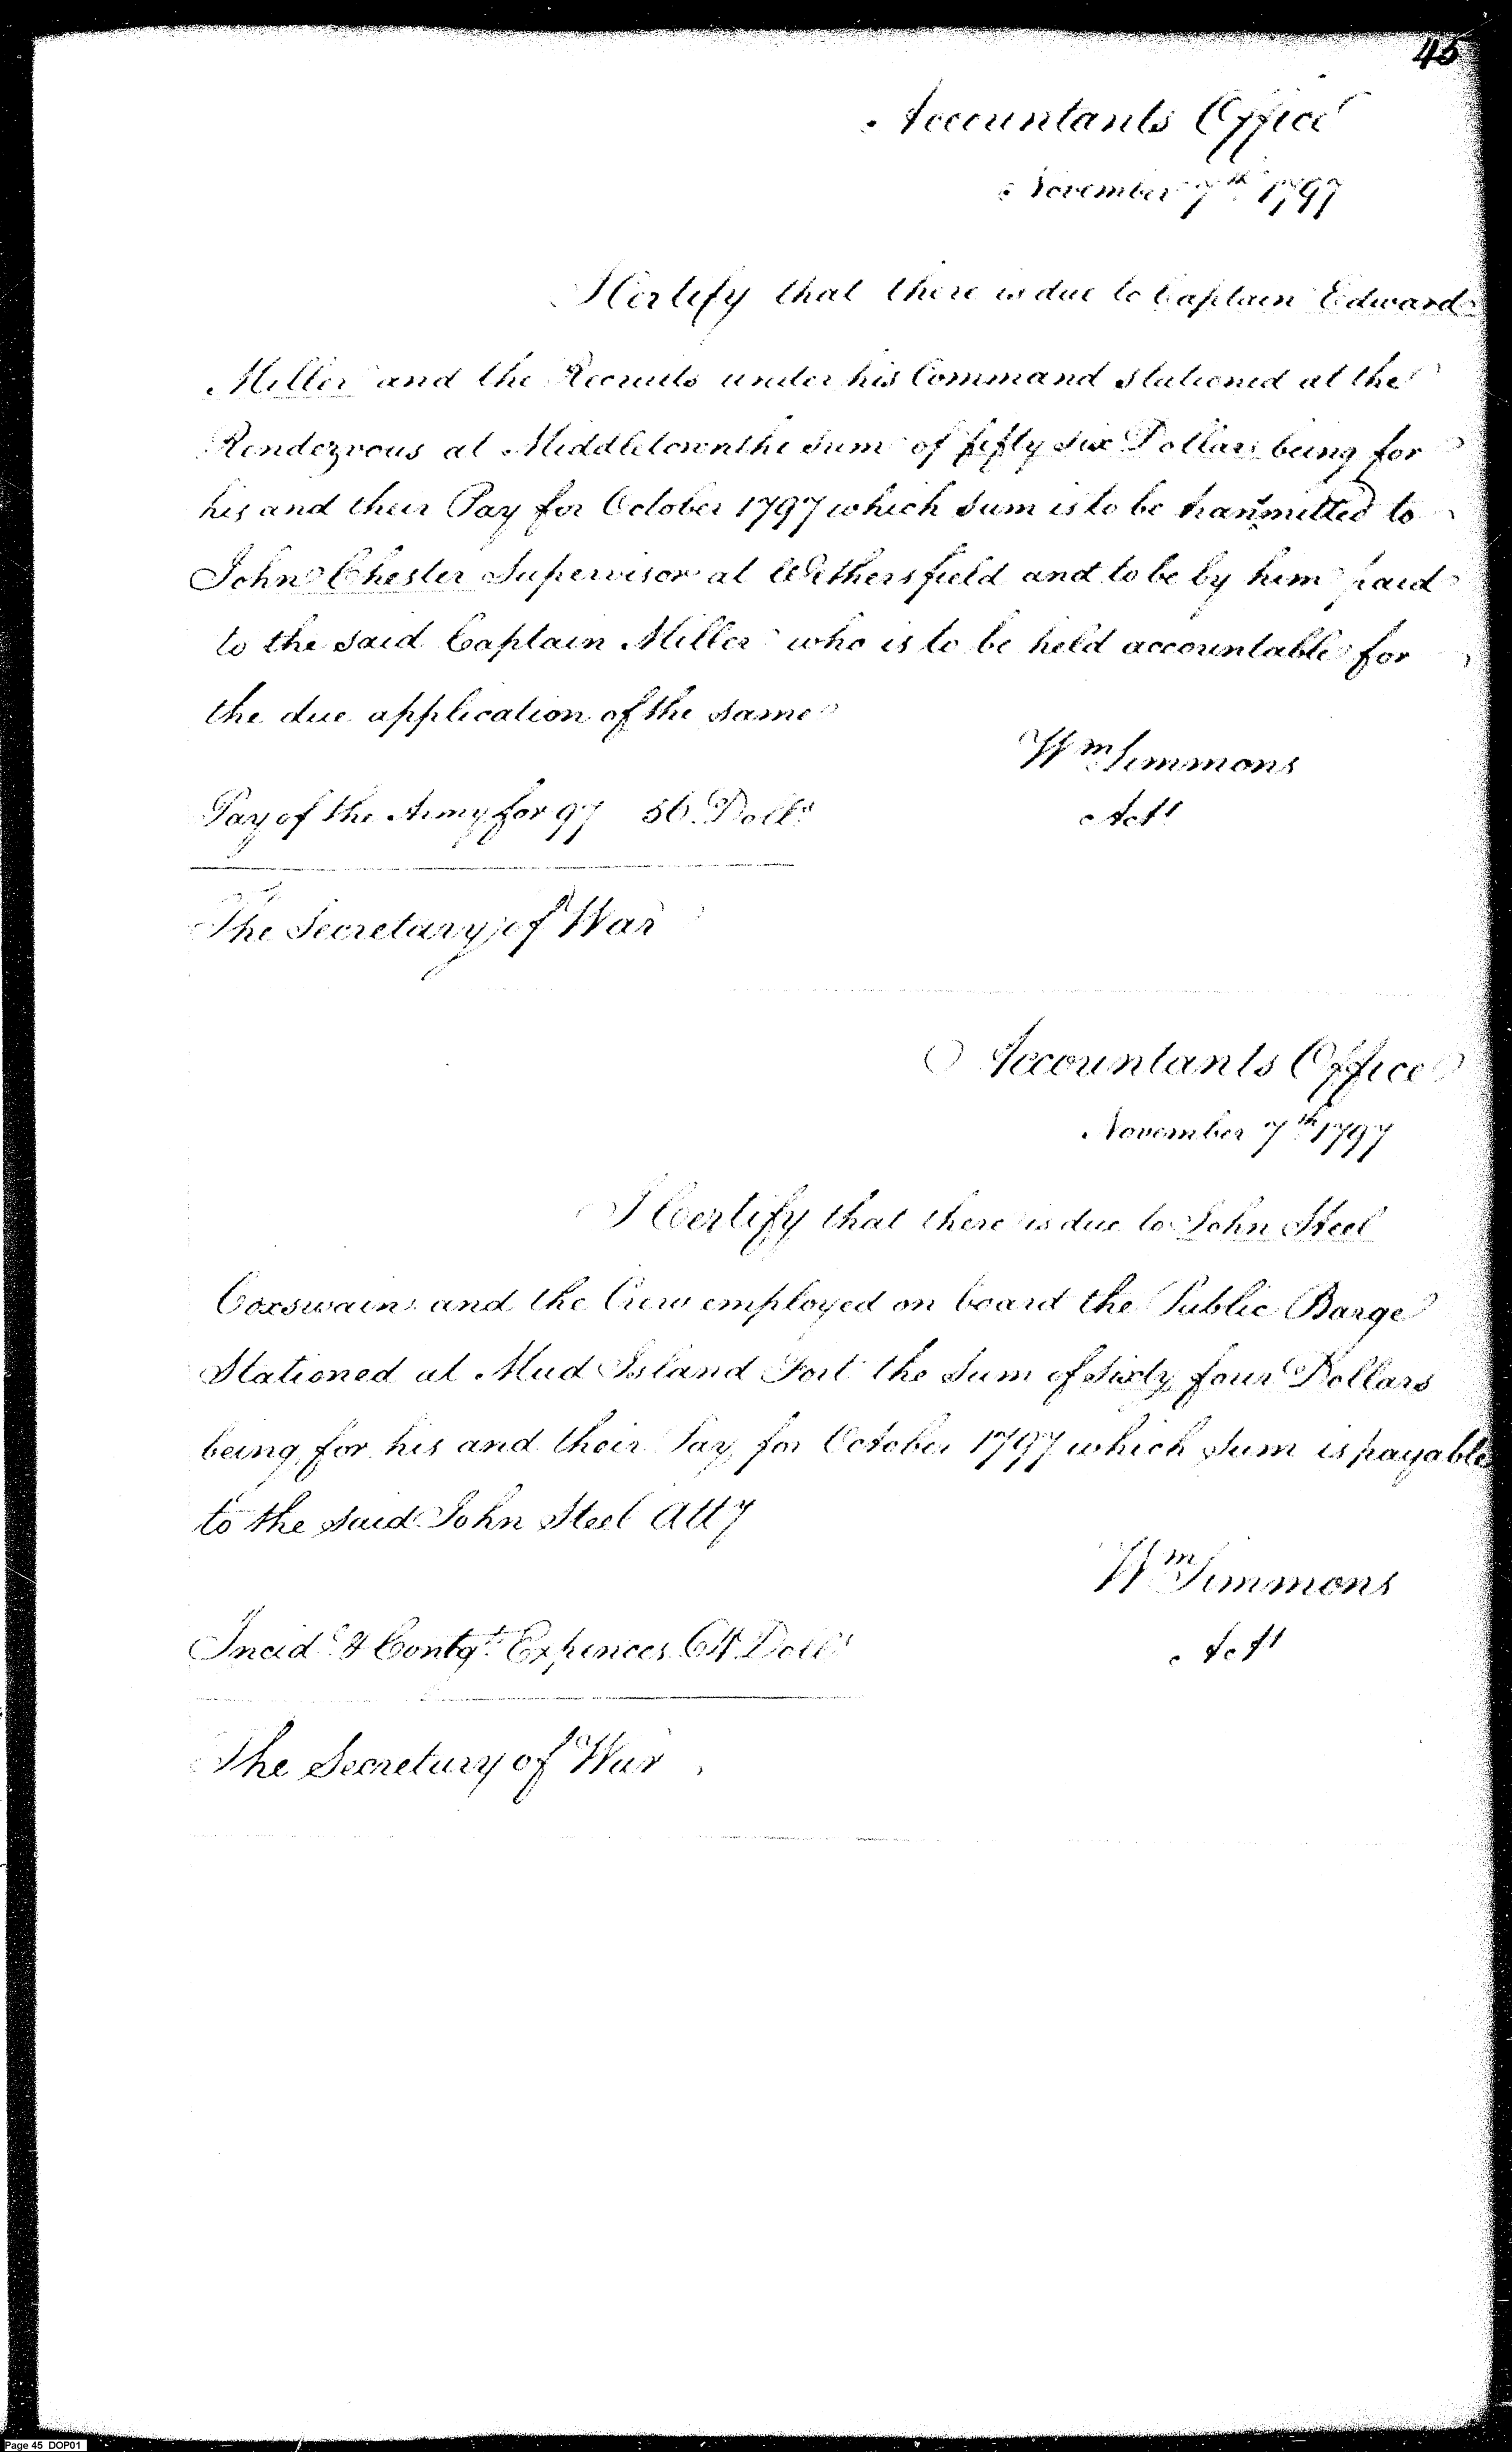 45
Accountants Office
November 7th 1797
I Certify that there is due to Captain Edward
Miller and the Recruits under his Command stationed at the
Rendezvous at Middletown the Sum of fifty six Dollars being for
his and their Pay for October 1797 which sum is to be transmitted to
John Chester Supervisor at Wethersfield and to be by him paid
to the said Captain Miller who is to be held accountable for
the due application of the same
Wm Simmons
Pay of the Army for 97 56 Dolls
Actt
The Secretary of War
Accountants Office
November 7th 1797
I Certify that there is due to John Steel
Coxswain and the Crew employed on board the Public Barge
Stationed at Mud Island Fort the Sum of Sixty four Dollars
being for his and their Pay for October 1797 which Sum is payable
to the said John Steel Atty
Wm Simmons
Incidl & Contgt Expences 64 Dolls
Actt
The Secretary of War
Page 45 DOP01